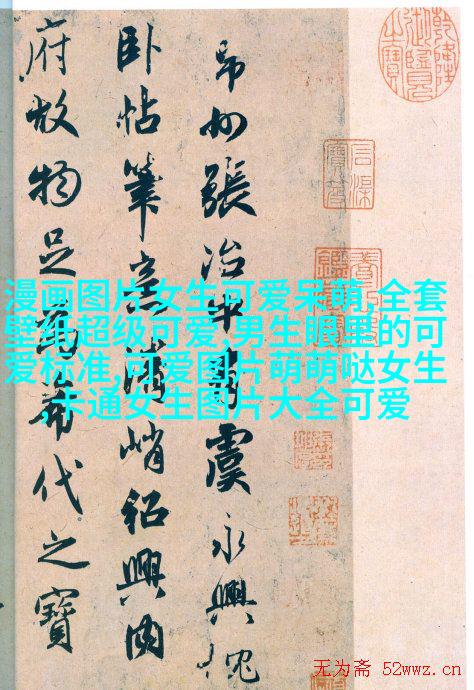 乾隆御覽之寶
州張治中虞永興枕
卧帖筆意清峭紹興内
府故物足為希代之寶
漫画图片女生可爱呆萌,全套
壁纸超级可爱,男生眼里的可
爱标准,可爱图片萌萌哒女生
卡通女生图片大全可爱
无为斋 52wwz.cn